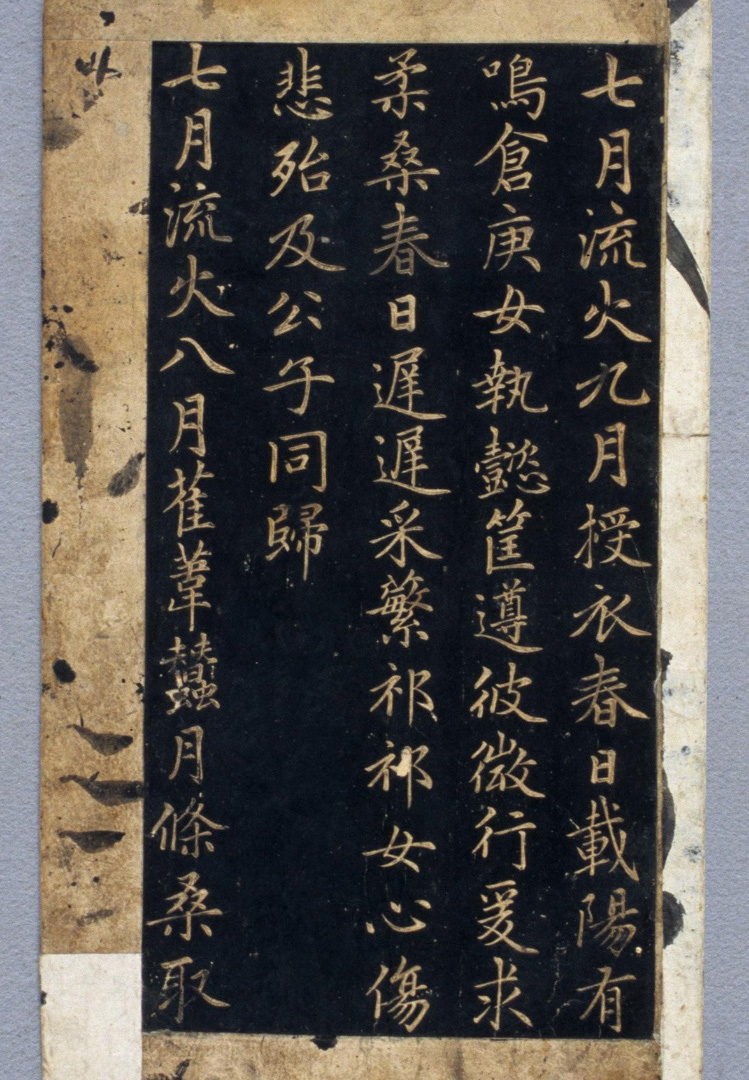 七月流火九月授衣春日載陽有
鳴倉庚女執懿筐遵彼微行爰求
柔桑春日遲遲采繁祁祁女心傷
悲殆及公子同歸
七月流火八月萑葦蠶月條桑取